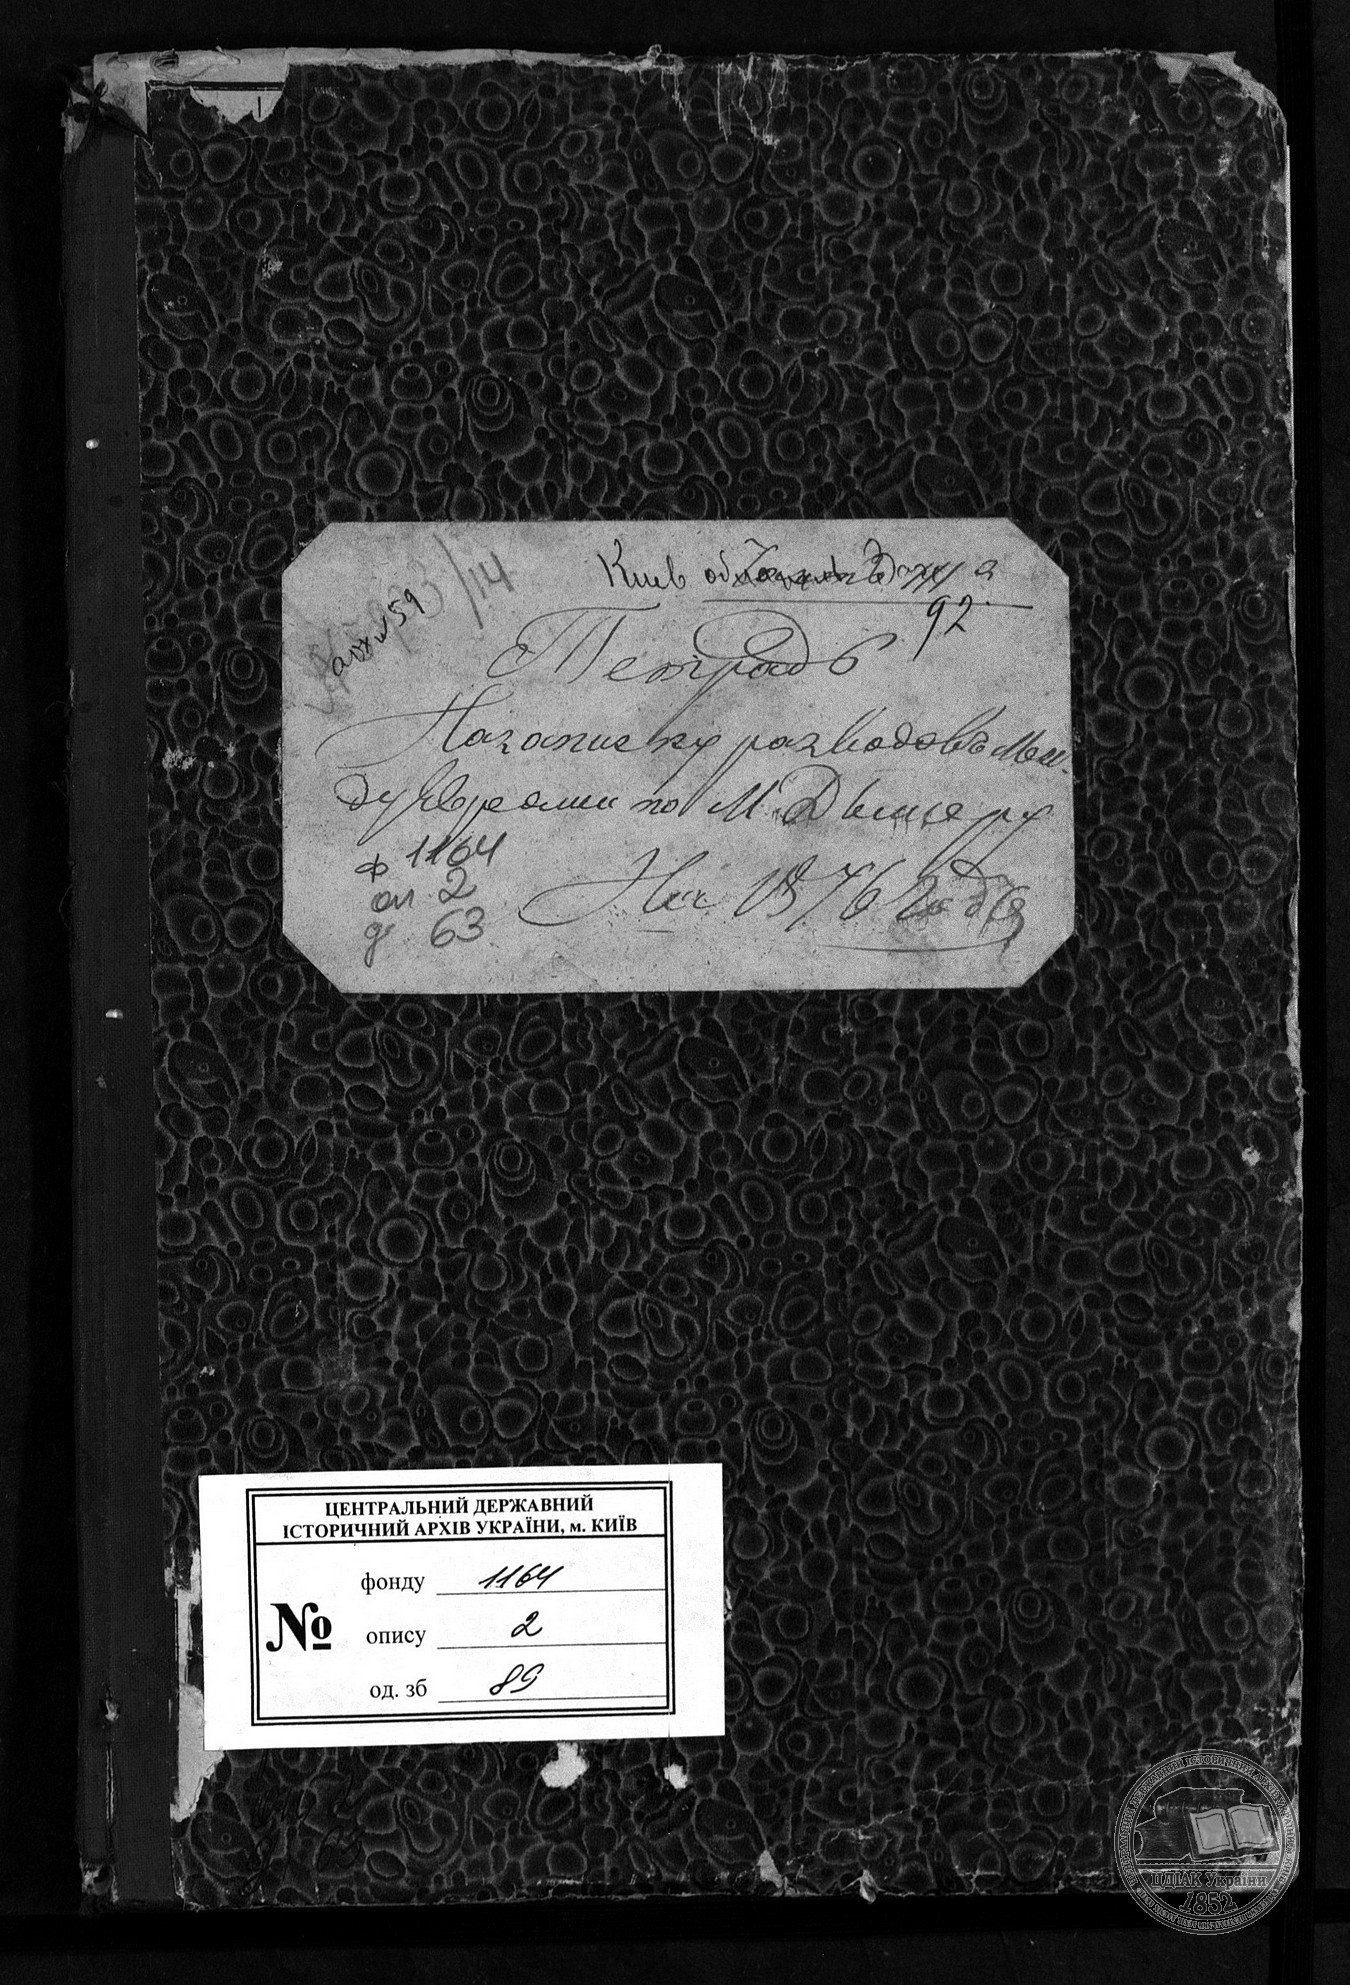 Киев
92
арх №59
/14
Тетрадь
Назаписку разводовъ Меж-
ду Евреями по М. Дымеру
На 1876 Года
ф 1164
оп 2
д 63
ЦЕНТРАЛЬНИЙ ДЕРЖАВНИЙ
ІСТОРИЧНИЙ АРХІВ УКРАЇНИ, м. КИЇВ
№
фонду 1164
опису 2
од. зб 89
д. 63
ЦДІАК України
1852